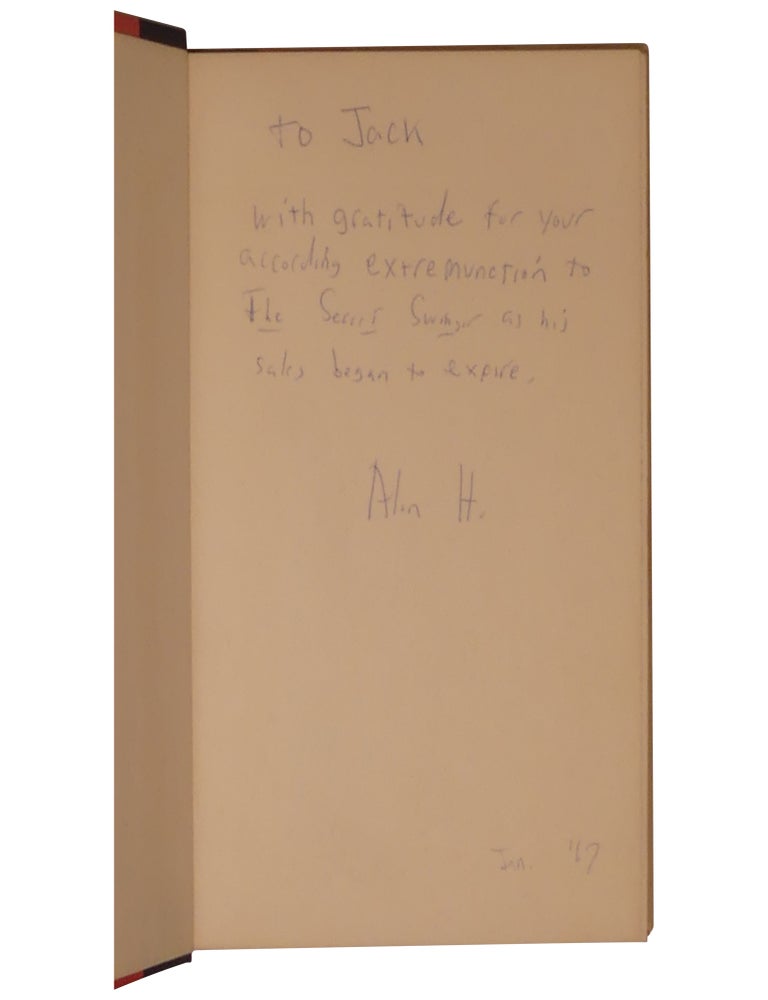 to Jack
with gratitude for your
according extremunction to
The Secret Swinger as his
sales began to expire.
Alan H.
Jan. '67